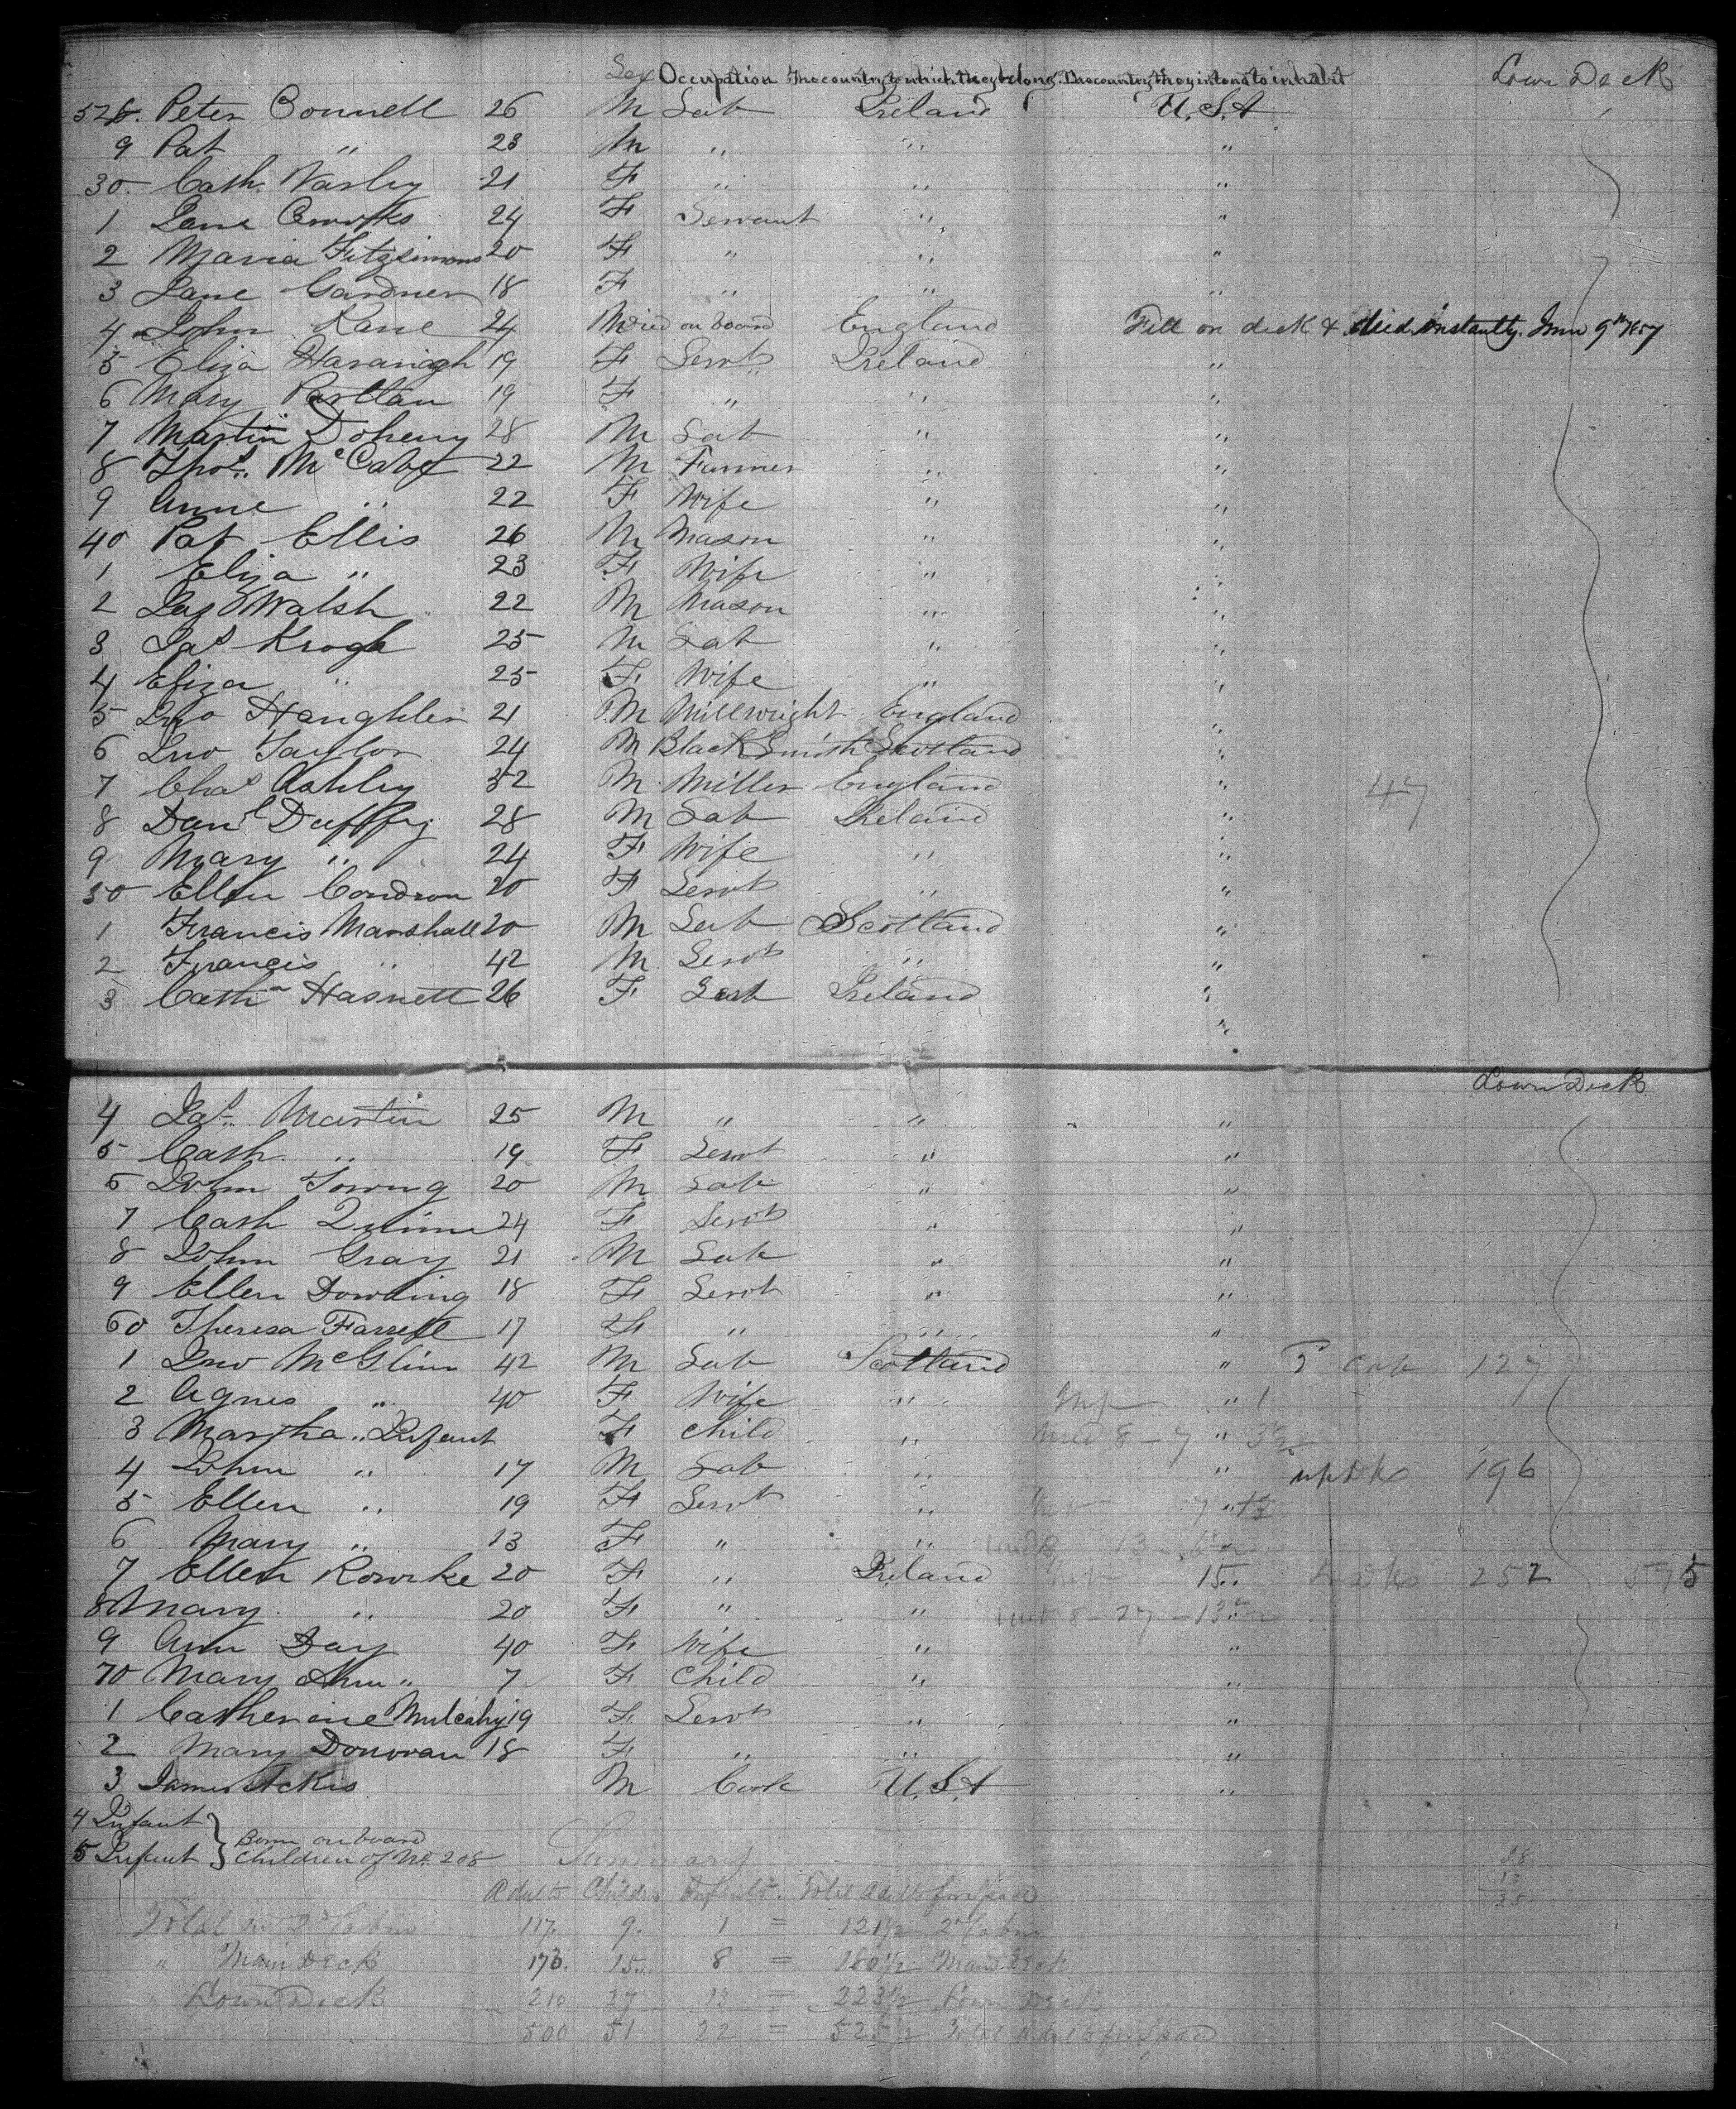 Sex Occupation The country to which they belong. The country they intend to inhabit Lower Deck
528. Peter Connell 26 M Lab Ireland U.S.A
9 Pat " 23 M " " "
30 Cath. Varley 21 F " " "
1 Jane Crooks 24 F Servant " "
2 Maria Fitzsimons 20 F " " "
3 Jane Gardner 18 F " " "
4 John Kane 24 M Died on board England Fell on deck & died instantly. June 9th 1857
5 Eliza Havanagh 19 F Servt Ireland "
6 Mary Parttan 19 F " " "
7 Martin Doheny 28 M Lab " "
8 Thos. McCabe 22 M Farmer " "
9 Anne " 22 F Wife " "
40 Pat Ellis 26 M Mason " "
1 Eliza " 23 F Wife " "
2 Jas Walsh 22 M Mason " "
3 Jas Krogh 25 M Lab " "
4 Eliza " 25 F Wife " "
5 Jno Haughler 21 M Millwright England "
6 Jno Taylor 24 M Black Smith Scotland "
7 Chas Ashley 32 M Miller England " 47
8 Danl Duffy 28 M Lab Ireland "
9 Mary " 24 F Wife " "
50 Ellen Condron 20 F Servt " "
1 Francis Marshall 20 M Lab Scotland "
2 Francis " 42 M Servt " "
3 Cathn Hasnett 26 F Ireland "
"
Lower Deck
4 Jas. Martin 25 M " " "
5 Cath. " 19 F Servt " "
6 John 20 M Lab " "
7 Cath Quinn 24 F Servt " "
8 John Gray 21 M Lab " "
9 Ellen Dowling 18 F Servt " "
60 Theresa Farrell 17 F " " "
1 Jno McGlinn 42 M Lab Scotland " 2d Cab 127
2 Agnes " 40 F Wife " Inf " 1
3 Martha " Infant F Child " und 8 - 7 " 3 1/2
4 John " 17 M Lab " " up Dk 196
5 Ellen " 19 F Servt " 7 "
6 Mary " 13 F " " und 8 13 - 6 1/2
7 Ellen Rourke 20 F " Ireland 15 " L Dk 252 575
8 Mary " 20 F " " und 8 - 27 - 13 1/2
9 Ann Day 40 F Wife " "
70 Mary Ann " 7 F Child " "
1 Catherine Mulcahy 19 F Servt " "
2 Mary Donovan 18 F " " "
3 James Ackis M Cook U.S.A "
4 Infant
5 Infant } Born on board Children of No. 208
Summary
38
13
25
Adults Children Infants. Total Adults for Space
Total in 2d Cabin 117. 9. 1 = 121 1/2 2d Cabin
" Main Deck 173. 15 " 8 = 180 1/2 Main Deck
" Lower Deck 210 27 13 = 223 1/2 Lower Deck
500 51 22 = 525 1/2 Total Adults for Space
8